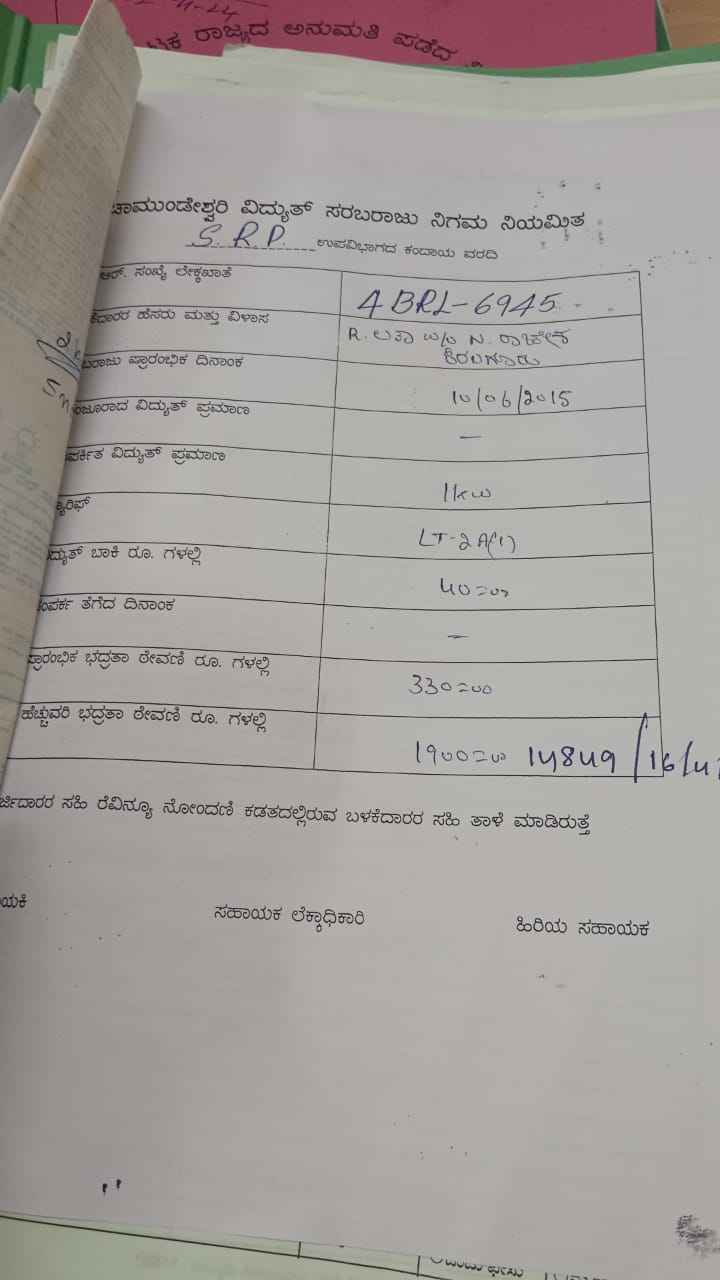 ರಾಜ್ಯದ ಅನುಮತಿ ಪಡೆದ
ಚಾಮುಂಡೇಶ್ವರಿ ವಿದ್ಯುತ್ ಸರಬರಾಜು ನಿಗಮ ನಿಯಮಿತ
S.R.P. ಉಪವಿಭಾಗದ ಕಂದಾಯ ವರದಿ
ಆರ್. ಸಂಖ್ಯೆ ಲೆಕ್ಕಖಾತೆ 4BRL-6945
ಕೆದಾರರ ಹೆಸರು ಮತ್ತು ವಿಳಾಸ R. ಲತಾ w/o N. ರಾಜೇಶ
ಕಿರಂಗೂರು
ಬರಾಜು ಪ್ರಾರಂಭಿಕ ದಿನಾಂಕ 10/06/2015
ಂಜೂರಾದ ವಿದ್ಯುತ್ ಪ್ರಮಾಣ —
ಪರ್ಕಿತ ವಿದ್ಯುತ್ ಪ್ರಮಾಣ 1kw
್ಯಾರಿಫ್ LT-2A(1)
ದ್ಯುತ್ ಬಾಕಿ ರೂ. ಗಳಲ್ಲಿ 40=00
ಂಪರ್ಕ ತೆಗೆದ ದಿನಾಂಕ —
ಪ್ರಾರಂಭಿಕ ಭದ್ರತಾ ಠೇವಣಿ ರೂ. ಗಳಲ್ಲಿ 330=00
ಹೆಚ್ಚುವರಿ ಭದ್ರತಾ ಠೇವಣಿ ರೂ. ಗಳಲ್ಲಿ 1900=00 14849/16/4
ರ್ಜಿದಾರರ ಸಹಿ ರೆವಿನ್ಯೂ ನೋಂದಣಿ ಕಡತದಲ್ಲಿರುವ ಬಳಕೆದಾರರ ಸಹಿ ತಾಳೆ ಮಾಡಿರುತ್ತೆ
ಯಕಿ ಸಹಾಯಕ ಲೆಕ್ಕಾಧಿಕಾರಿ ಹಿರಿಯ ಸಹಾಯಕ